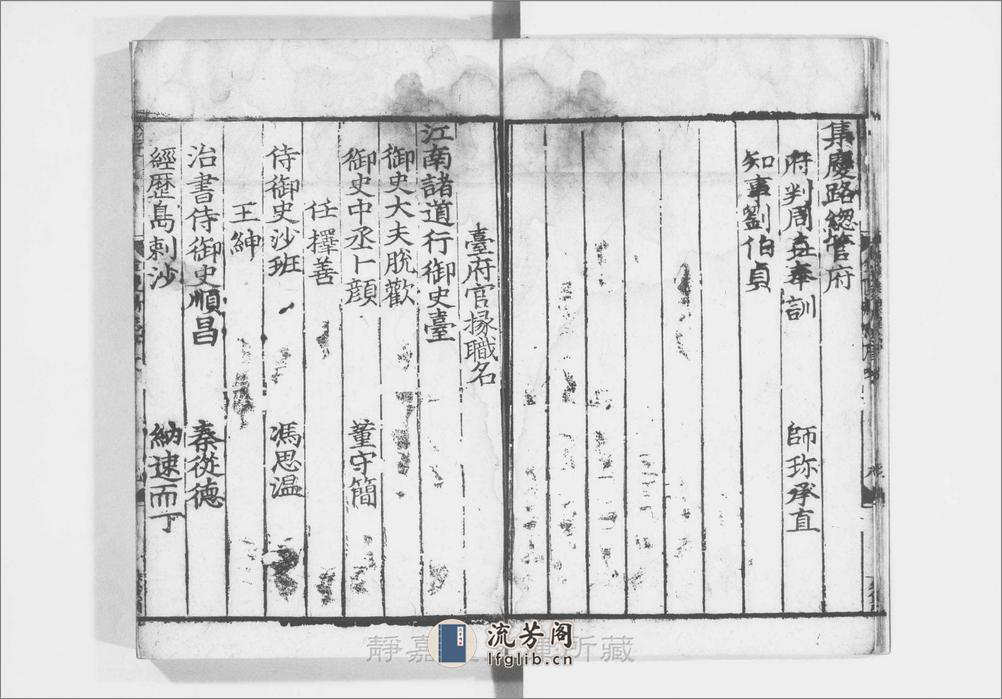 集慶路總管府
府判周 奉訓
師珎承直
知事劉伯貞
臺府官掾職名
江南諸道行御史臺
御史大夫脫歡
御史中丞卜顔
董守簡
任擇善
侍御史沙班
馮思温
王紳
治書侍御史順昌
秦從德
經歷島剌沙
納速而丁
靜嘉 所藏
流芳阁
lfglib.cn